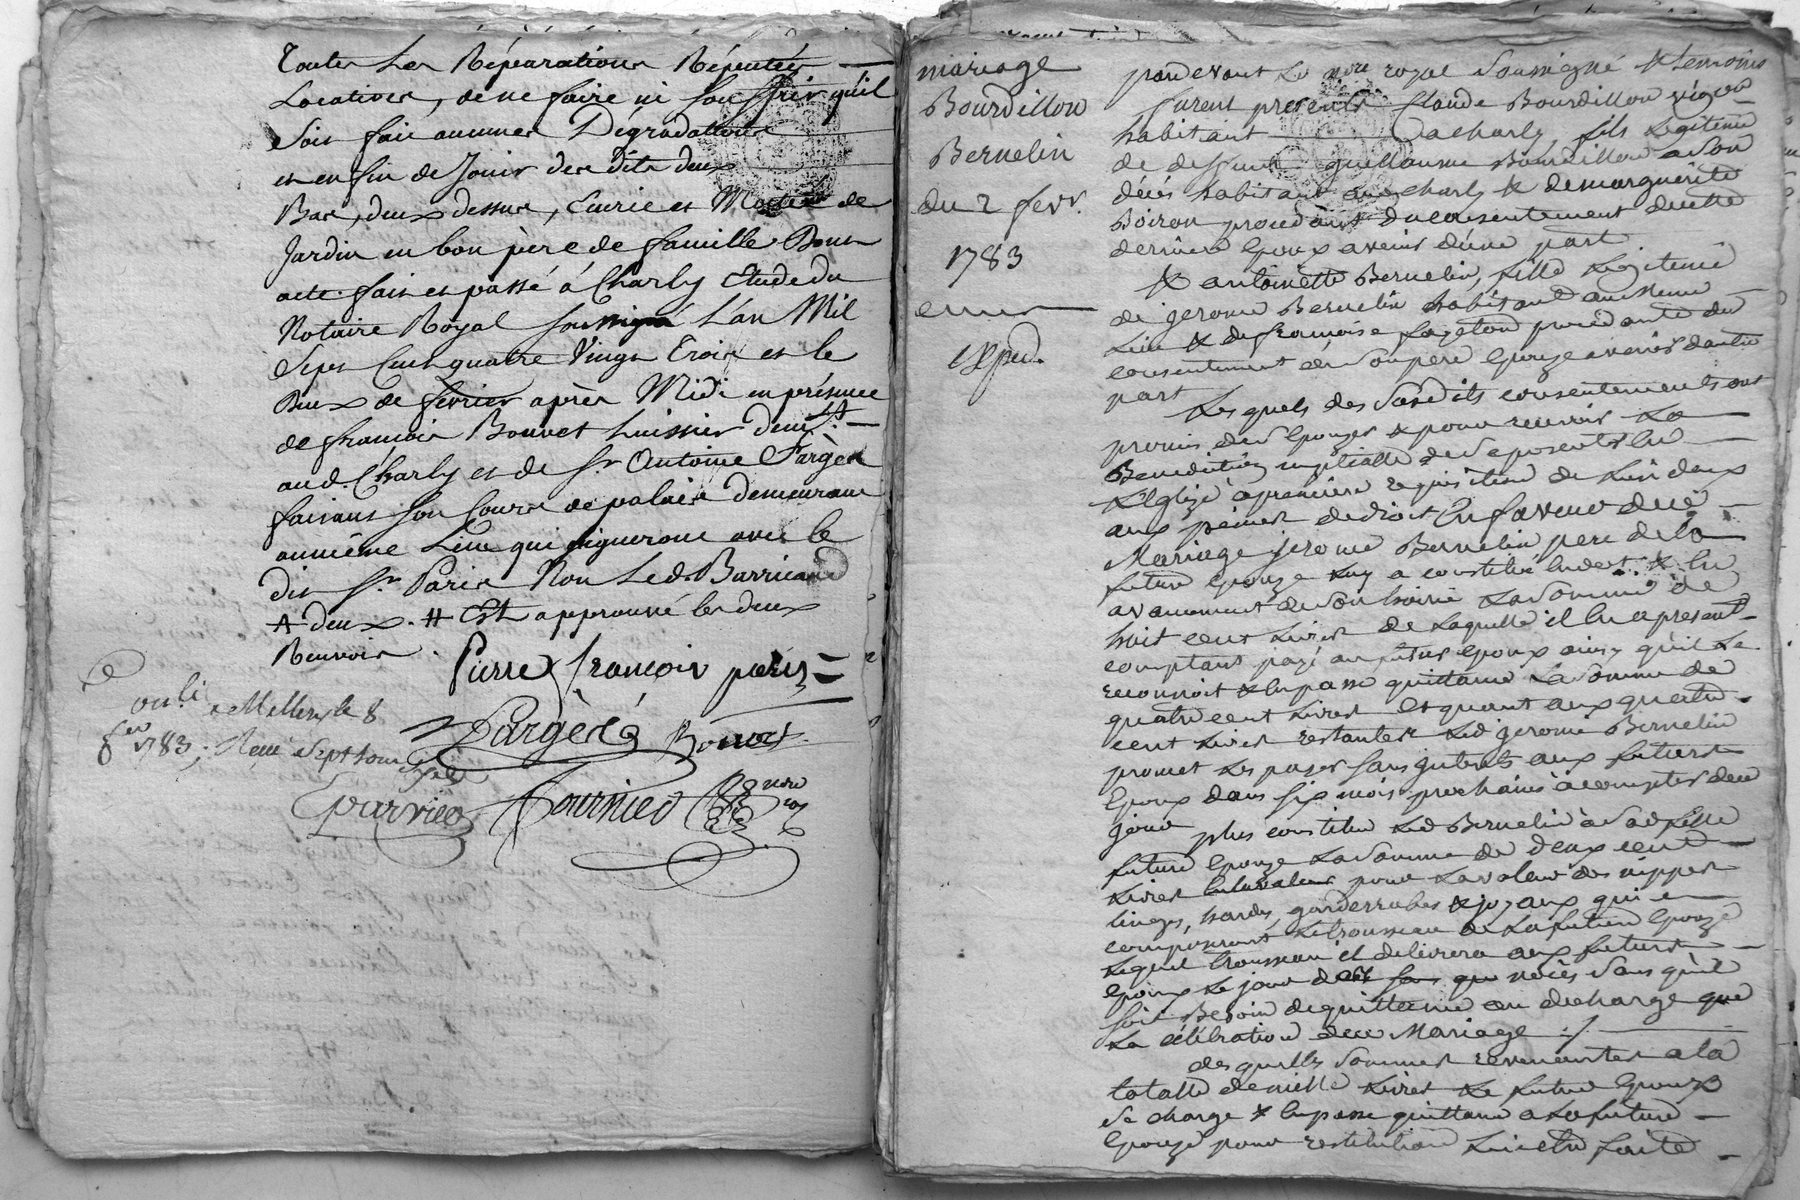 Toutes les Réparations Réputées
Locatives, de ne faire ni souffrir qu'il
Soit fait aucunes Dégradations
et enfin de Jouir desdits deux
Bas, deux dessus, Ecurie et Moitié de
Jardin en bon père de famille Dont
acte fait et passé à Charly Etude du
Notaire Royal soussigné L'an Mil
Sept Cent quatre Vingt Trois et le
Deux de février après Midi en présence
de françois Bouvet huissier demt #
aud. Charly et de Sr Antoine Fargère
faisant son Cours de palais demeurant
au même Lieu qui signeront avec le
dit Sr Paris Non Led Barricand
# deux. # Est approuvé les deux
Renvois.
Pierre françois paris
Fargère Bouvet
Coñlé à Millery le 8
fer 1783; Reçu Sept sous
Parrieo
Fournier nore
mariage
Bourdillon
Bernelin
du 2 fevr.
1783
exped.
pardevant Le nore royal Soussigné & temoins
furent presents Claude Bourdillon vigron
habitant a charly fils Legitime
de deffunt guillaume Bourdillon a Son
décés habitant au charly & de marguerite
Boiron procedant du consentement de cette
derniere Epoux avenir d'une part
& antoinette Bernelin, fille Legitime
de jerome Bernelin habitant au meme
Lieu & de francoise procedante du
consentement de Son pere Epouze avenir dautre
part
Lesquels des Susdits consentements ont
promis de S'epouzer & pour recevoir La
Benediction nuptialle de Se presenter en
L'Eglize a premiere requisition de L'un deux
aux peines de droit En faveur dece
Mariage jerome Bernelin pere de la
future Epouze Luy a constitué en dot & en
avancement de Son hoirie La Somme de
huit cent Livres de Laquelle il en a presentt
comptant payé au futur epoux ainsy quil Le
reconnoit & en passe quittance La Somme de
quatre cent Livres Et quant aux quatre
cent Livres restantes Led jerome Bernelin
promet Les payer Sans interets aux futurs
Epoux dans Six mois prochains a compter dece
jour
plus constitue Led Bernelin a Sad fille
future Epouze La Somme de deux cent
Livres pour La valeur des nippes
linges, hardes, garderrobes & joyaux qui
composeront Le trousseau de La future Epouze
Lequel trousseau il delivrera aux futurs
Epoux Le jour des noces Sans quil
Soit Besoin de quittance ou decharge que
La célébration dece Mariage ./.
desquelles Sommes revenantes a la
totalle de mille Livres Le futur Epoux
Se charge & en passe quittance a La future
Epouze pour restitution Lui etre faite